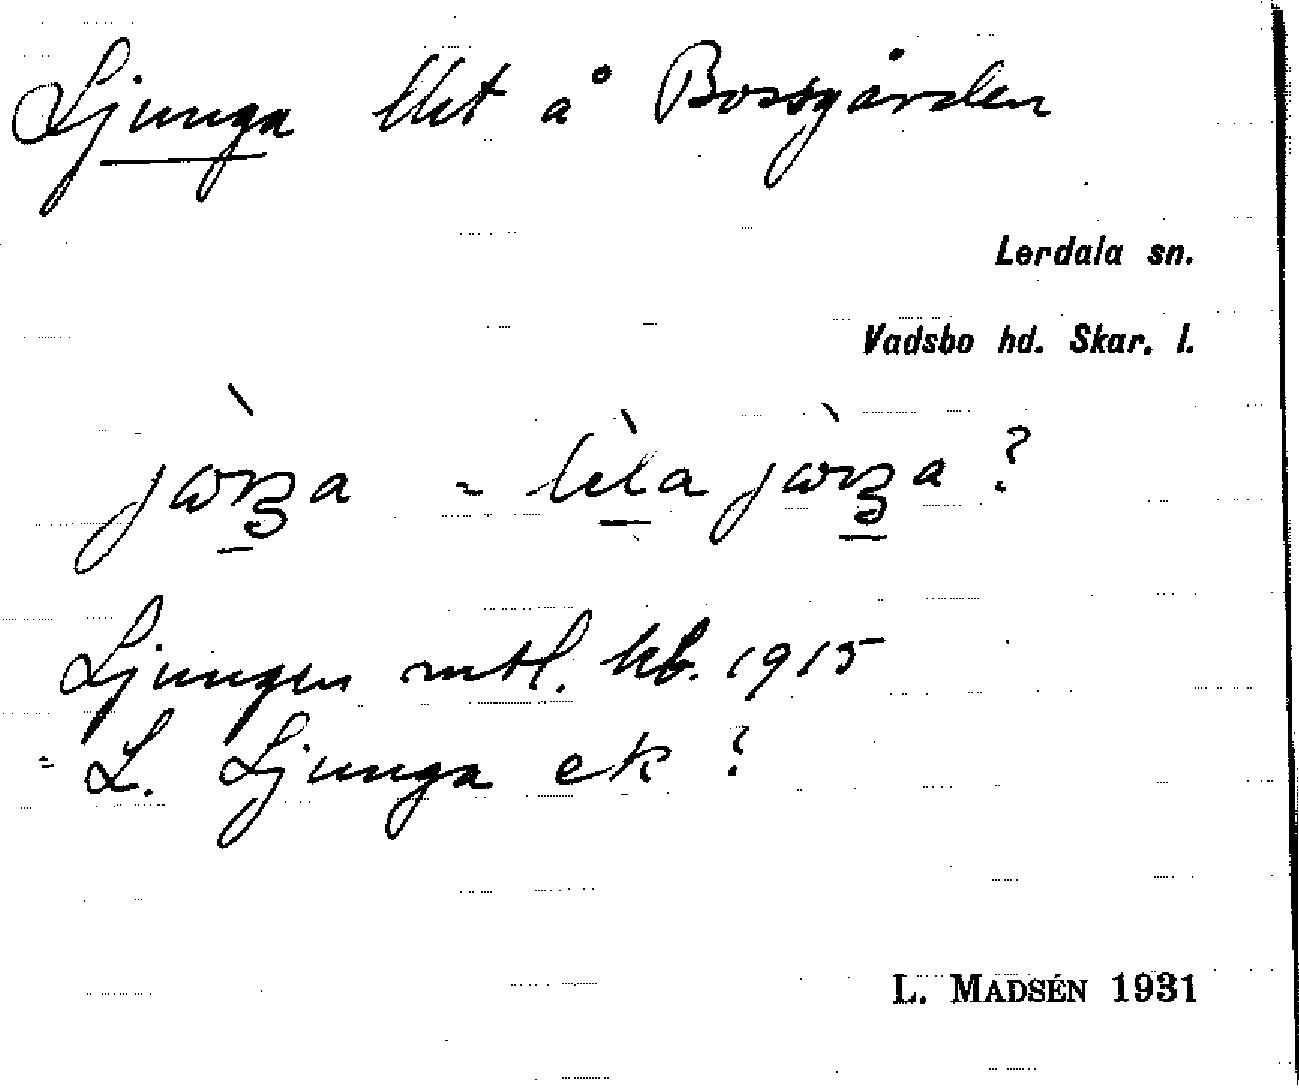 Ljunga lht å Bossgården
Lerdala sn.
Vadsbo hd. Skar. l.
= lila ?
Ljungen mtl. kb. 1915
= L. Ljunga ek ?
L. MADSÉN 1931